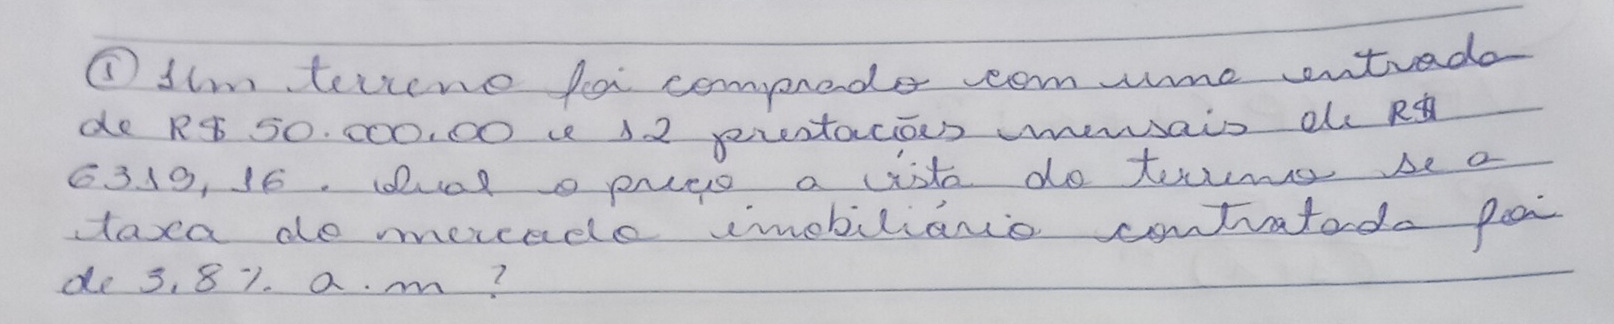 ① Um terreno foi comprado com uma entrada
de R$ 50.000,00 e 12 prestações mensais de R$
6319,16. Qual o preço a vista do terreno se a
taxa do mercado imobiliário contratada foi
de 3,8% a.m?